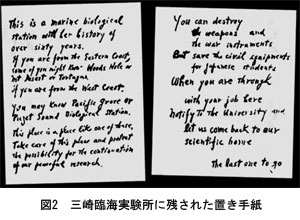 This is a marine biological
station with her history of
over sixty years.
If you are from the Eastern Coast,
some of you might know Woods Hole or
Mt Desert or Tortugas.
If you are from the West Coast,
you may know Pacific Grove or
Puget Sound Biological Station.
This place is a place like one of these.
Take care of this place and protect
the possibility for the continuation
of our peaceful research.
You can destroy
the weapons and
the war instruments
But save the civil equipments
for Japanese students
When you are through
with your job here
Notify to the University and
let us come back to our
scientific home
The last one to go
図2 三崎臨海実験所に残された置き手紙